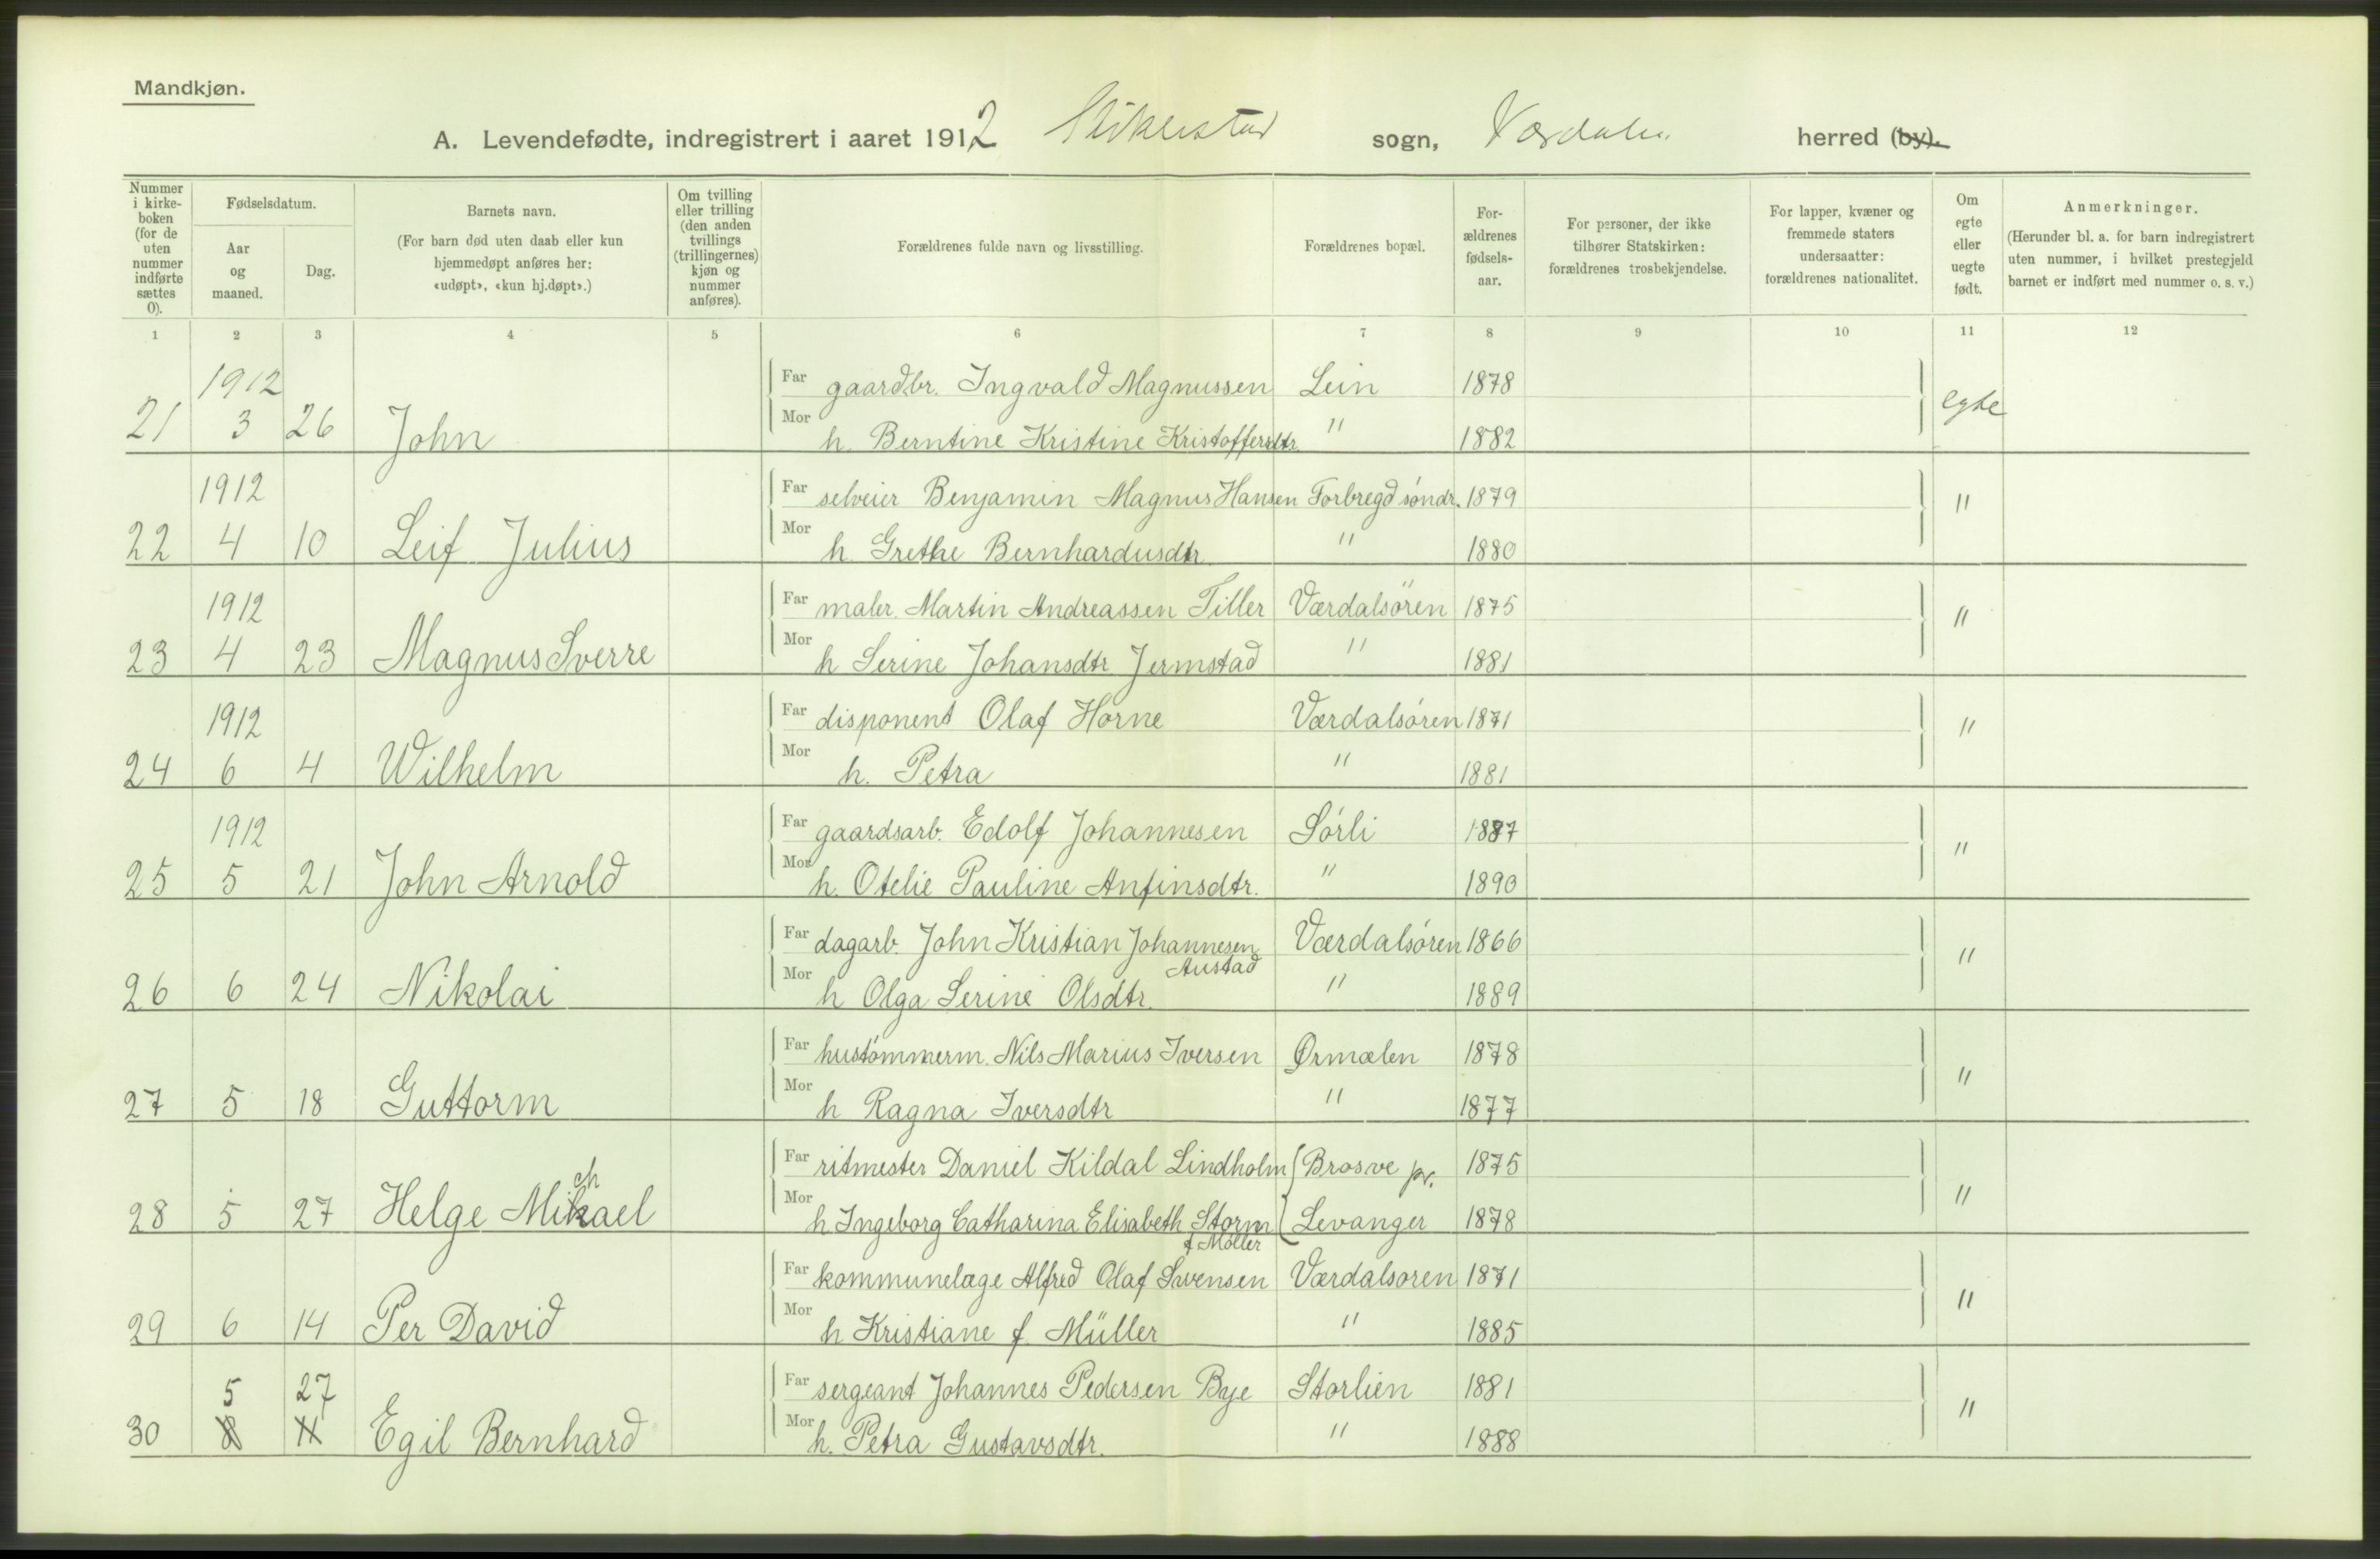 Mandkjøn.
A. Levendefødte, indregistrert i aaret 1912 Stiklestad sogn, Værdalen herred (by).
Nummer i kirke-boken (for de uten nummer indførte sættes 0).
Fødselsdatum.
Aar og maaned.
Dag.
Barnets navn.
(For barn død uten daab eller kun hjemmedøpt anføres her: «udøpt», «kun hj.døpt».)
Om tvilling eller trilling (den anden tvillings (trillingernes) kjøn og nummer anføres).
Forældrenes fulde navn og livsstilling.
Forældrenes bopæl.
For-ældrenes fødsels-aar.
For personer, der ikke tilhører Statskirken: forældrenes trosbekjendelse.
For lapper, kvæner og fremmede staters undersaatter: forældrenes nationalitet.
Om egte eller uegte født.
Anmerkninger.
(Herunder bl. a. for barn indregistrert uten nummer, i hvilket prestegjeld barnet er indført med nummer o. s. v.)
1 2 3 4 5 6 7 8 9 10 11 12
1912 Far gaardbr. Ingvald Magnussen Lein 1878 egte
21 3 26 John Mor h. Berntine Kristine Kristoffersdtr. " 1882
1912 Far selveier Benjamin Magnus Hansen Forbregd söndr. 1879 "
22 4 10 Leif Julius Mor h. Grethe Bernhardusdtr. " 1880
1912 Far maler. Martin Andreassen Tiller Værdalsören 1875 "
23 4 23 Magnus Sverre Mor h Serine Johansdtr Jermstad " 1881
1912 Far disponent Olaf Horne Værdalsören 1871 "
24 6 4 Wilhelm Mor h. Petra " 1881
1912 Far gaardsarb. Edolf Johannesen Sörli 1887 "
25 5 21 John Arnold Mor h. Otelie Pauline Anfinsdtr. " 1890
Far dagarb. John Kristian Johannesen Værdalsören 1866 "
Austad
26 6 24 Nikolai Mor h Olga Serine Olsdtr. " 1889
Far hustömmerm. Nils Marius Iversen Ørmælen 1878 "
27 5 18 Guttorm Mor h Ragna Iversdtr " 1877
Far ritmester Daniel Kildal Lindholm Brosve pr. 1875 "
ch
28 5 27 Helge Mikael Mor h. Ingeborg Catharina Elisabeth Storm Levanger 1878
f Möller
Far kommunelæge Alfred Olaf Svensen Værdalsoren 1871 "
29 6 14 Per David Mor h Kristiane f. Müller " 1885
5 27 Far sergeant Johannes Pedersen Bye Storlien 1881 "
30 8 11 Egil Bernhard Mor h. Petra Gustavsdtr. " 1888